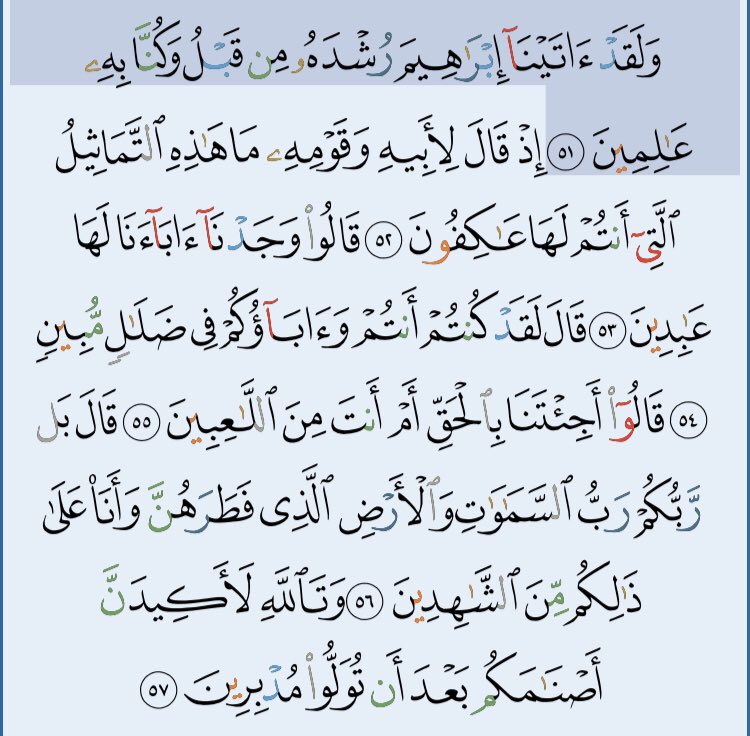 وَلَقَدْ ءَاتَيْنَآ إِبْرَٰهِيمَ رُشْدَهُۥ مِن قَبْلُ وَكُنَّا بِهِۦ
عَٰلِمِينَ ٥١ إِذْ قَالَ لِأَبِيهِ وَقَوْمِهِۦ مَا هَٰذِهِ ٱلتَّمَاثِيلُ
ٱلَّتِىٓ أَنتُمْ لَهَا عَٰكِفُونَ ٥٢ قَالُوا۟ وَجَدْنَآ ءَابَآءَنَا لَهَا
عَٰبِدِينَ ٥٣ قَالَ لَقَدْ كُنتُمْ أَنتُمْ وَءَابَآؤُكُمْ فِى ضَلَٰلٍ مُّبِينٍ
٥٤ قَالُوٓا۟ أَجِئْتَنَا بِٱلْحَقِّ أَمْ أَنتَ مِنَ ٱللَّٰعِبِينَ ٥٥ قَالَ بَل
رَّبُّكُمْ رَبُّ ٱلسَّمَٰوَٰتِ وَٱلْأَرْضِ ٱلَّذِى فَطَرَهُنَّ وَأَنَا۠ عَلَىٰ
ذَٰلِكُم مِّنَ ٱلشَّٰهِدِينَ ٥٦ وَتَٱللَّهِ لَأَكِيدَنَّ
أَصْنَٰمَكُم بَعْدَ أَن تُوَلُّوا۟ مُدْبِرِينَ ٥٧